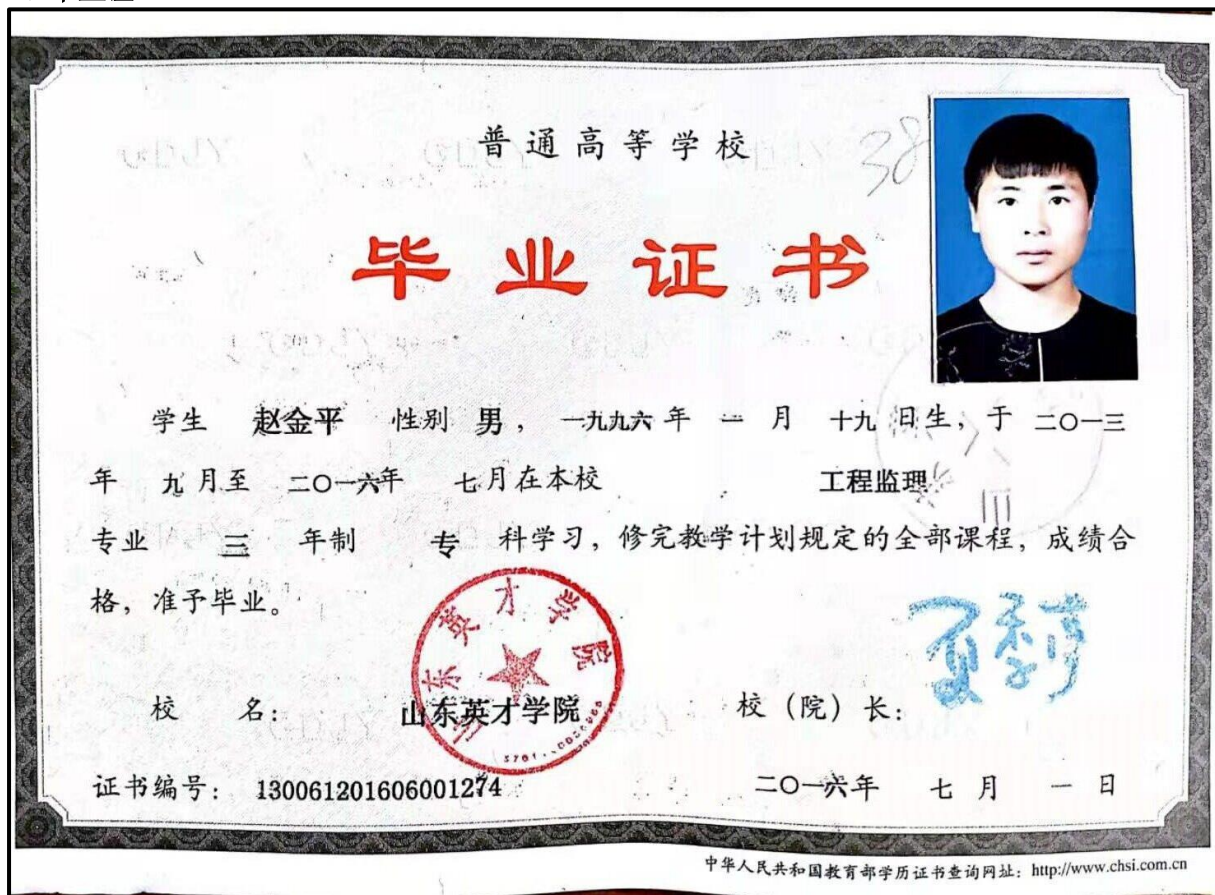 普通高等学校
38
毕业证书
学生 赵金平 性别 男，一九九六年 一 月 十九 日生，于 二〇一三
年 九月至 二〇一六年 七月在本校 工程监理
专业 三 年制 专 科学习，修完教学计划规定的全部课程，成绩合
格，准予毕业。
山东英才学院
校 名： 山东英才学院 校（院）长：
证书编号： 130061201606001274 二〇一六年 七 月 一 日
中华人民共和国教育部学历证书查询网址：http://www.chsi.com.cn